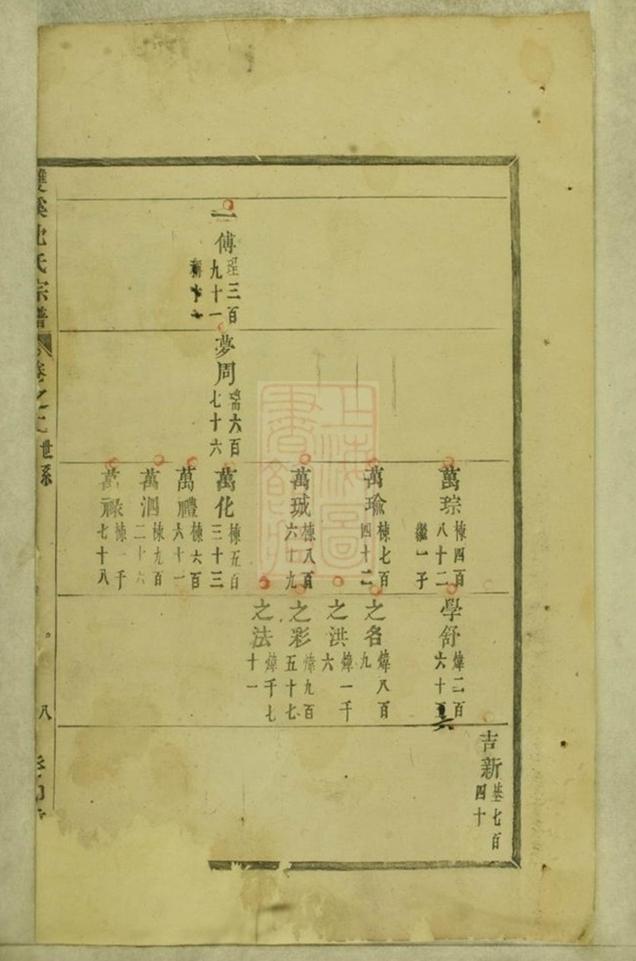 一傅
理三百
九十一
夢周
六百
七十六
萬琮
棟四百
八十二
繼一子
萬瑜
棟七百
四十二
萬珹
棟八百
六十九
萬化
棟五百
三十三
萬禮
棟六百
六十一
萬泗
棟九百
二十六
萬祿
棟一千
七十八
學舒
煒二百
六十
之名
煒八百
九
之洪
煒一千
六
之彩
煒九百
五十七
之法
煒千七
十一
吉新
基七百
四十
雙溪沈氏宗譜
卷之
世系
八
上海圖書館藏